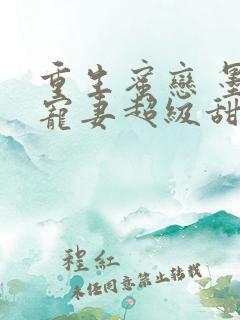 重生蜜戀 墨
寵妻超級甜
程紅
未经同意禁止转载